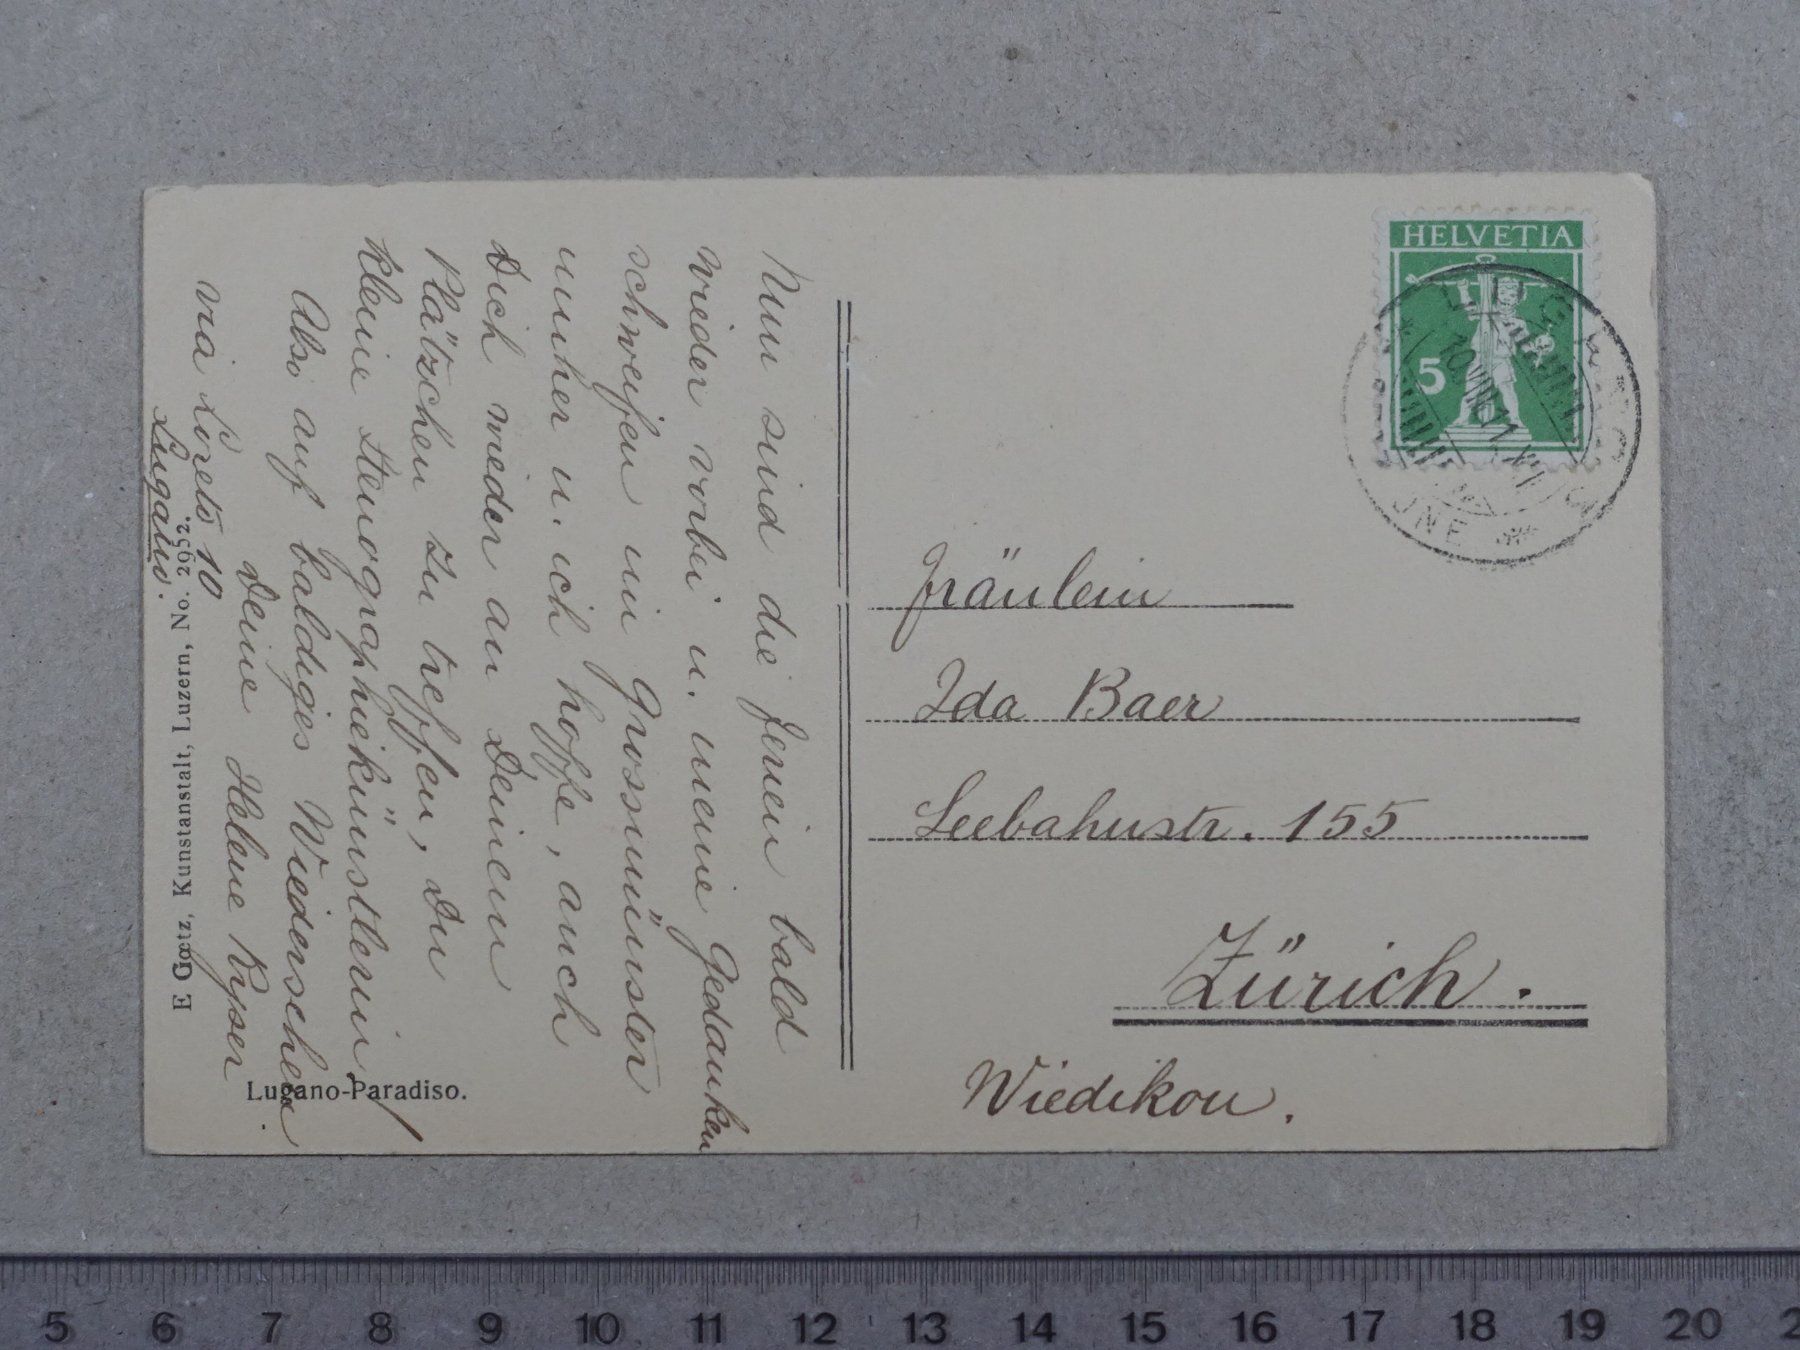 Nun sind die Ferien bald
wieder vorbei u. meine Gedanken
schweifen im Grossmünster
umher u. ich hoffe, auch
Dich wieder an Deinem
Plätzchen zu treffen, Du
kleine Stenographiekünstlerin!
Also auf baldiges Wiedersehen.
Deine Helene Ryser
via Loreto 10
Lugano.
E. Goetz, Kunstanstalt, Luzern, No. 2952.
Lugano-Paradiso.
HELVETIA
5
10.VIII.11
Fräulein
Ida Baer
Seebahnstr. 155
Zürich.
Wiedikon.
5 6 7 8 9 10 11 12 13 14 15 16 17 18 19 20 2